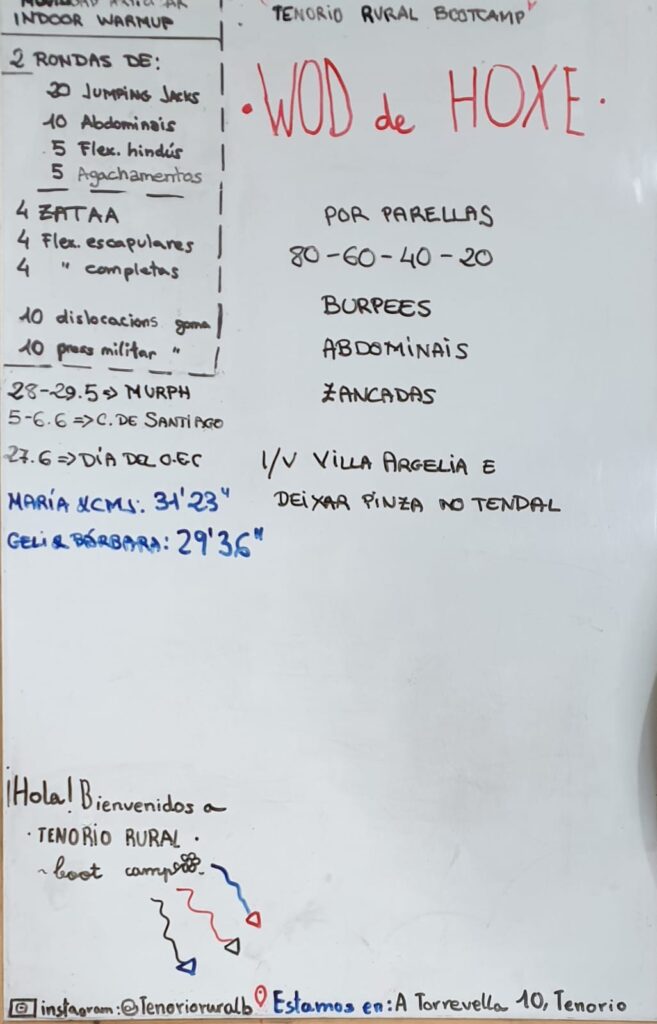 INDOOR WARMUP
2 RONDAS DE:
20 JUMPING JACKS
10 Abdominais
5 Flex. hindús
5 Agachamentos
4 ZATAA
4 Flex. escapulares
4 " completas
10 dislocacions goma
10 press militar "
28-29.5 => MURPH
5-6.6 => C. DE SANTIAGO
27.6 => DÍA DEL O.EC
MARÍA & CMS: 31'23"
GELI & BÁRBARA: 29'36"
TENORIO RURAL BOOTCAMP
· WOD de HOXE ·
POR PARELLAS
80-60-40-20
BURPEES
ABDOMINAIS
ZANCADAS
I/V VILLA ARGELIA E
DEIXAR PINZA NO TENDAL
¡Hola! Bienvenidos a
· TENORIO RURAL ·
~ boot camp
instagram: @Tenorioruralb
Estamos en: A Torrevella 10, Tenorio